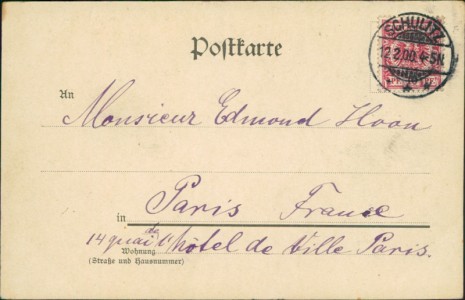 SCHULITZ
12.2.00. 4-5N.
Postkarte
An
Monsieur Edmond Hoon
in Paris France
14 quai de l'hôtel de Ville Paris.
Wohnung
(Straße und Hausnummer)